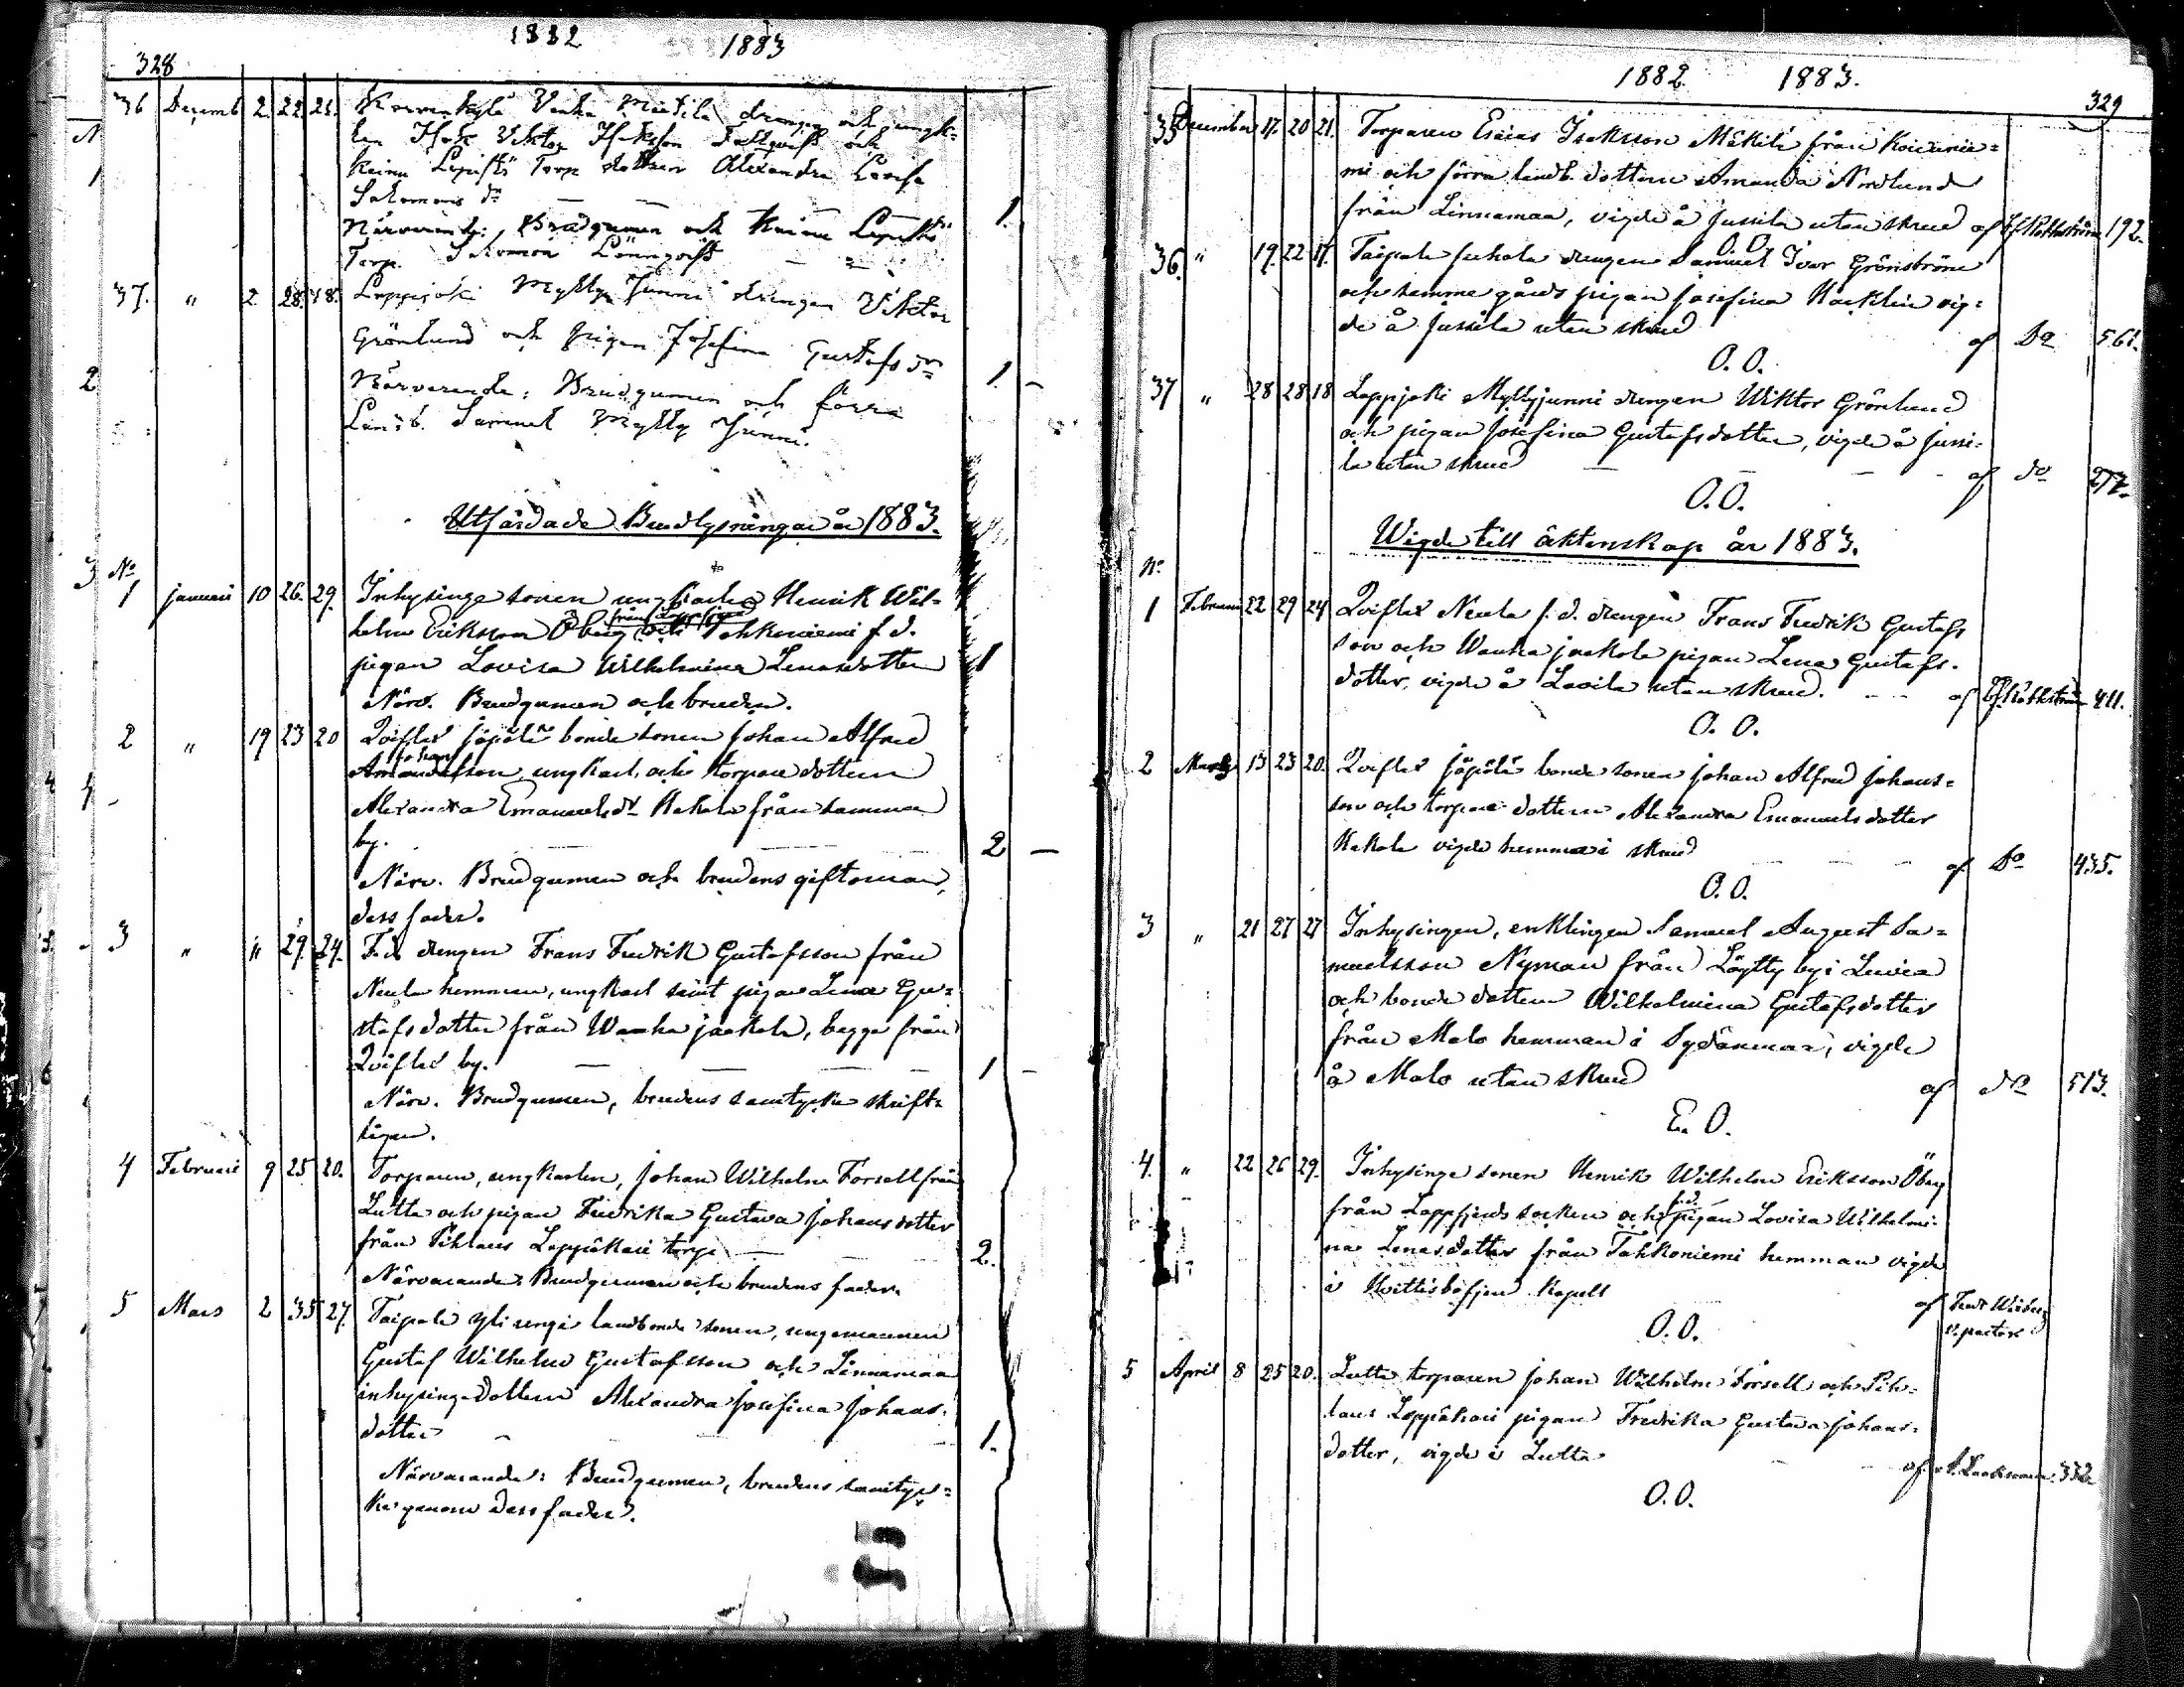 1882 1883
328
36 Decemb 2. 22. 21. drängen och ungk=
len Isak Viktor Isaksson och
Torp dottren Alexandra Lovisa
Salomons dr — — 1.
Närvarande: Brudgumen och
Torp. Salomon Lönnqvist
37. " 2 28. 18. Loppijoki Mylly Junni drängen Viktor
Grönlund och pigan Josefina Gustafs dr 1. —
Närvarande: Brudgumen och förra
Landb. Samuel Mylly Junni.
Utfärdade Brudlysningar år 1883.
No
1 Januari 10 26. 29. Inhysinge sonen ungkarlen Henrik Wil=
helm Eriksson Öberg och Tahkoniemi f. d.
pigan Lovisa Wilhelmina Lenasdotter 1
Närv. Brudgumen och bruden.
2 " 19 23 20 Qviflax Jöpölä bonde sonen Johan Alfred
Johansson, ungkarl, och torpare dottern
Alexandra Emanuels dr Kakola från samma
by. — — — 2 —
Närv. Brudgumen och brudens giftoman,
dess fader.
3 " " 29. 24. F. d. drängen Frans Fredrik Gustafsson från
Neula hemman, ungkarl samt pigan Lena Gu=
stafsdotter från Wanha Jaakola, begge från
Qviflax by. — — — 1 —
Närv. Brudgumen, brudens samtycke skrift=
ligen.
4 Februari 9 25 20. Torparen, ungkarlen, Johan Wilhelm Forsell från
Lutta och pigan Fredrika Gustava Johansdotter
från Pihlaus Leppäkari torp. — 2.
Närvarande: Brudgumen och brudens fader.
5 Mars 2 35 27. Taipale Yli landbonde sonen, ungemannen
Gustaf Wilhelm Gustafsson och Linnamaa
inhysinge dottern Alexandra Josefina Johans=
dotter 1.
Närvarande: Brudgumen, brudens samtyc=
ke genom dess fader.
1882. 1883.
329
35 December 17. 20 21. Torparen Esaias Isaksson Mäkilä från Koivunie=
mi och förra landb. dottern Amanda Nordlund
från Linnamaa, vigde å Jussila utan skrud af 192.
O. O.
36. " 19. 22 17. Taipale Juhola drängen Samuel Ivar Grönström
och samme gårds pigan Josefina vig=
de å Jussila utan skrud af Do 561.
O. O.
37 " 28 28 18 Loppijoki Myllyjunni drängen Wiktor Grönlund
och pigan Josefina Gustafsdotter, vigde å Jussi=
la utan skrud — — — af do
O. O.
Wigde till äktenskap år 1883.
No
1 Februari 22 29 24 Qviflax Neula f. d. drängen Frans Fredrik Gustafs
son och Wanha Jaakola pigan Lena Gustafs=
dotter, vigde å Lavila utan skrud. — af 411.
O. O.
2 Mars 13 23 20. Qviflax Jöpölä bonde sonen Johan Alfred Johans=
son och torpare dottern Alexandra Emanuels dotter
Kakola vigde hemma i skrud af Do 435.
O. O.
3 " 21 27 27 Inhysingen, enklingen Samuel August Sa=
muelsson Nyman från Löytty by i Luvia
och bonde dottern Wilhelmina Gustafsdotter
från Malo hemman i Sydänmaa, vigde
å Malo utan skrud af do 513.
E. O.
4. " 22 26 29. Inhysinge sonen Henrik Wilhelm Eriksson Öberg
från Lappfjerds socken och f.d. pigan Lovisa Wilhelmi=
na Lenasdotter från Tahkoniemi hemman vigde
i Hvittisbofjerd Kapell af
O. O.
5 April 8 25 20. Lutta torparen Johan Wilhelm Forsell och Pih=
laus Leppäkari pigan Fredrika Gustava Johans=
dotter, vigde i Lutta af 332
O. O.